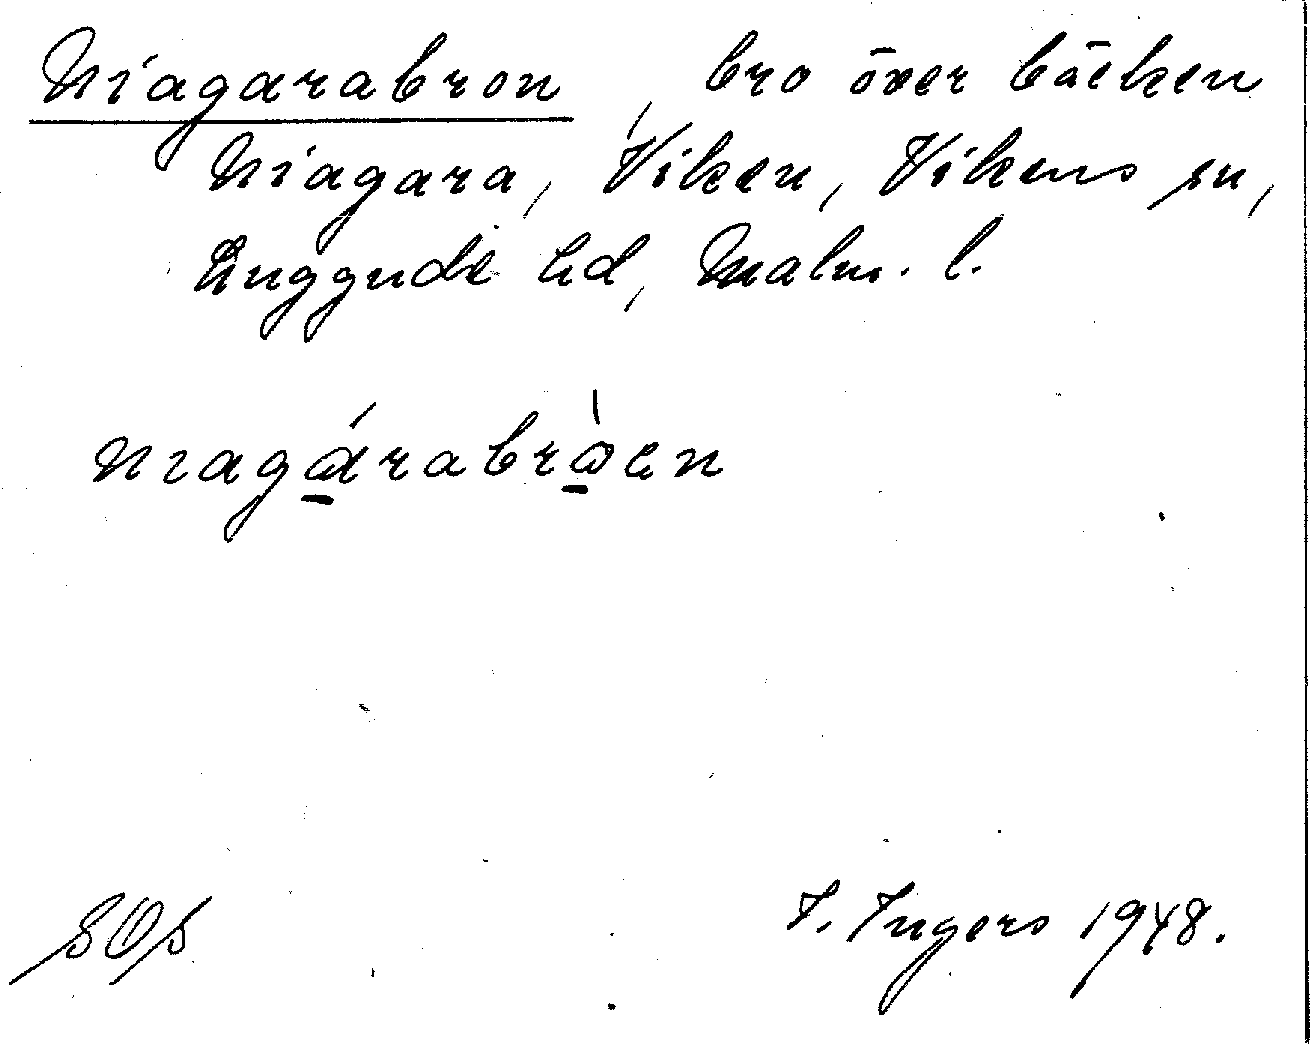 Niagarabron, bro över bäcken
Niagara, Viken, Vikens sn,
Luggude hd, Malm. l.
niagárabròen
SOS
I. Ingers 1948.